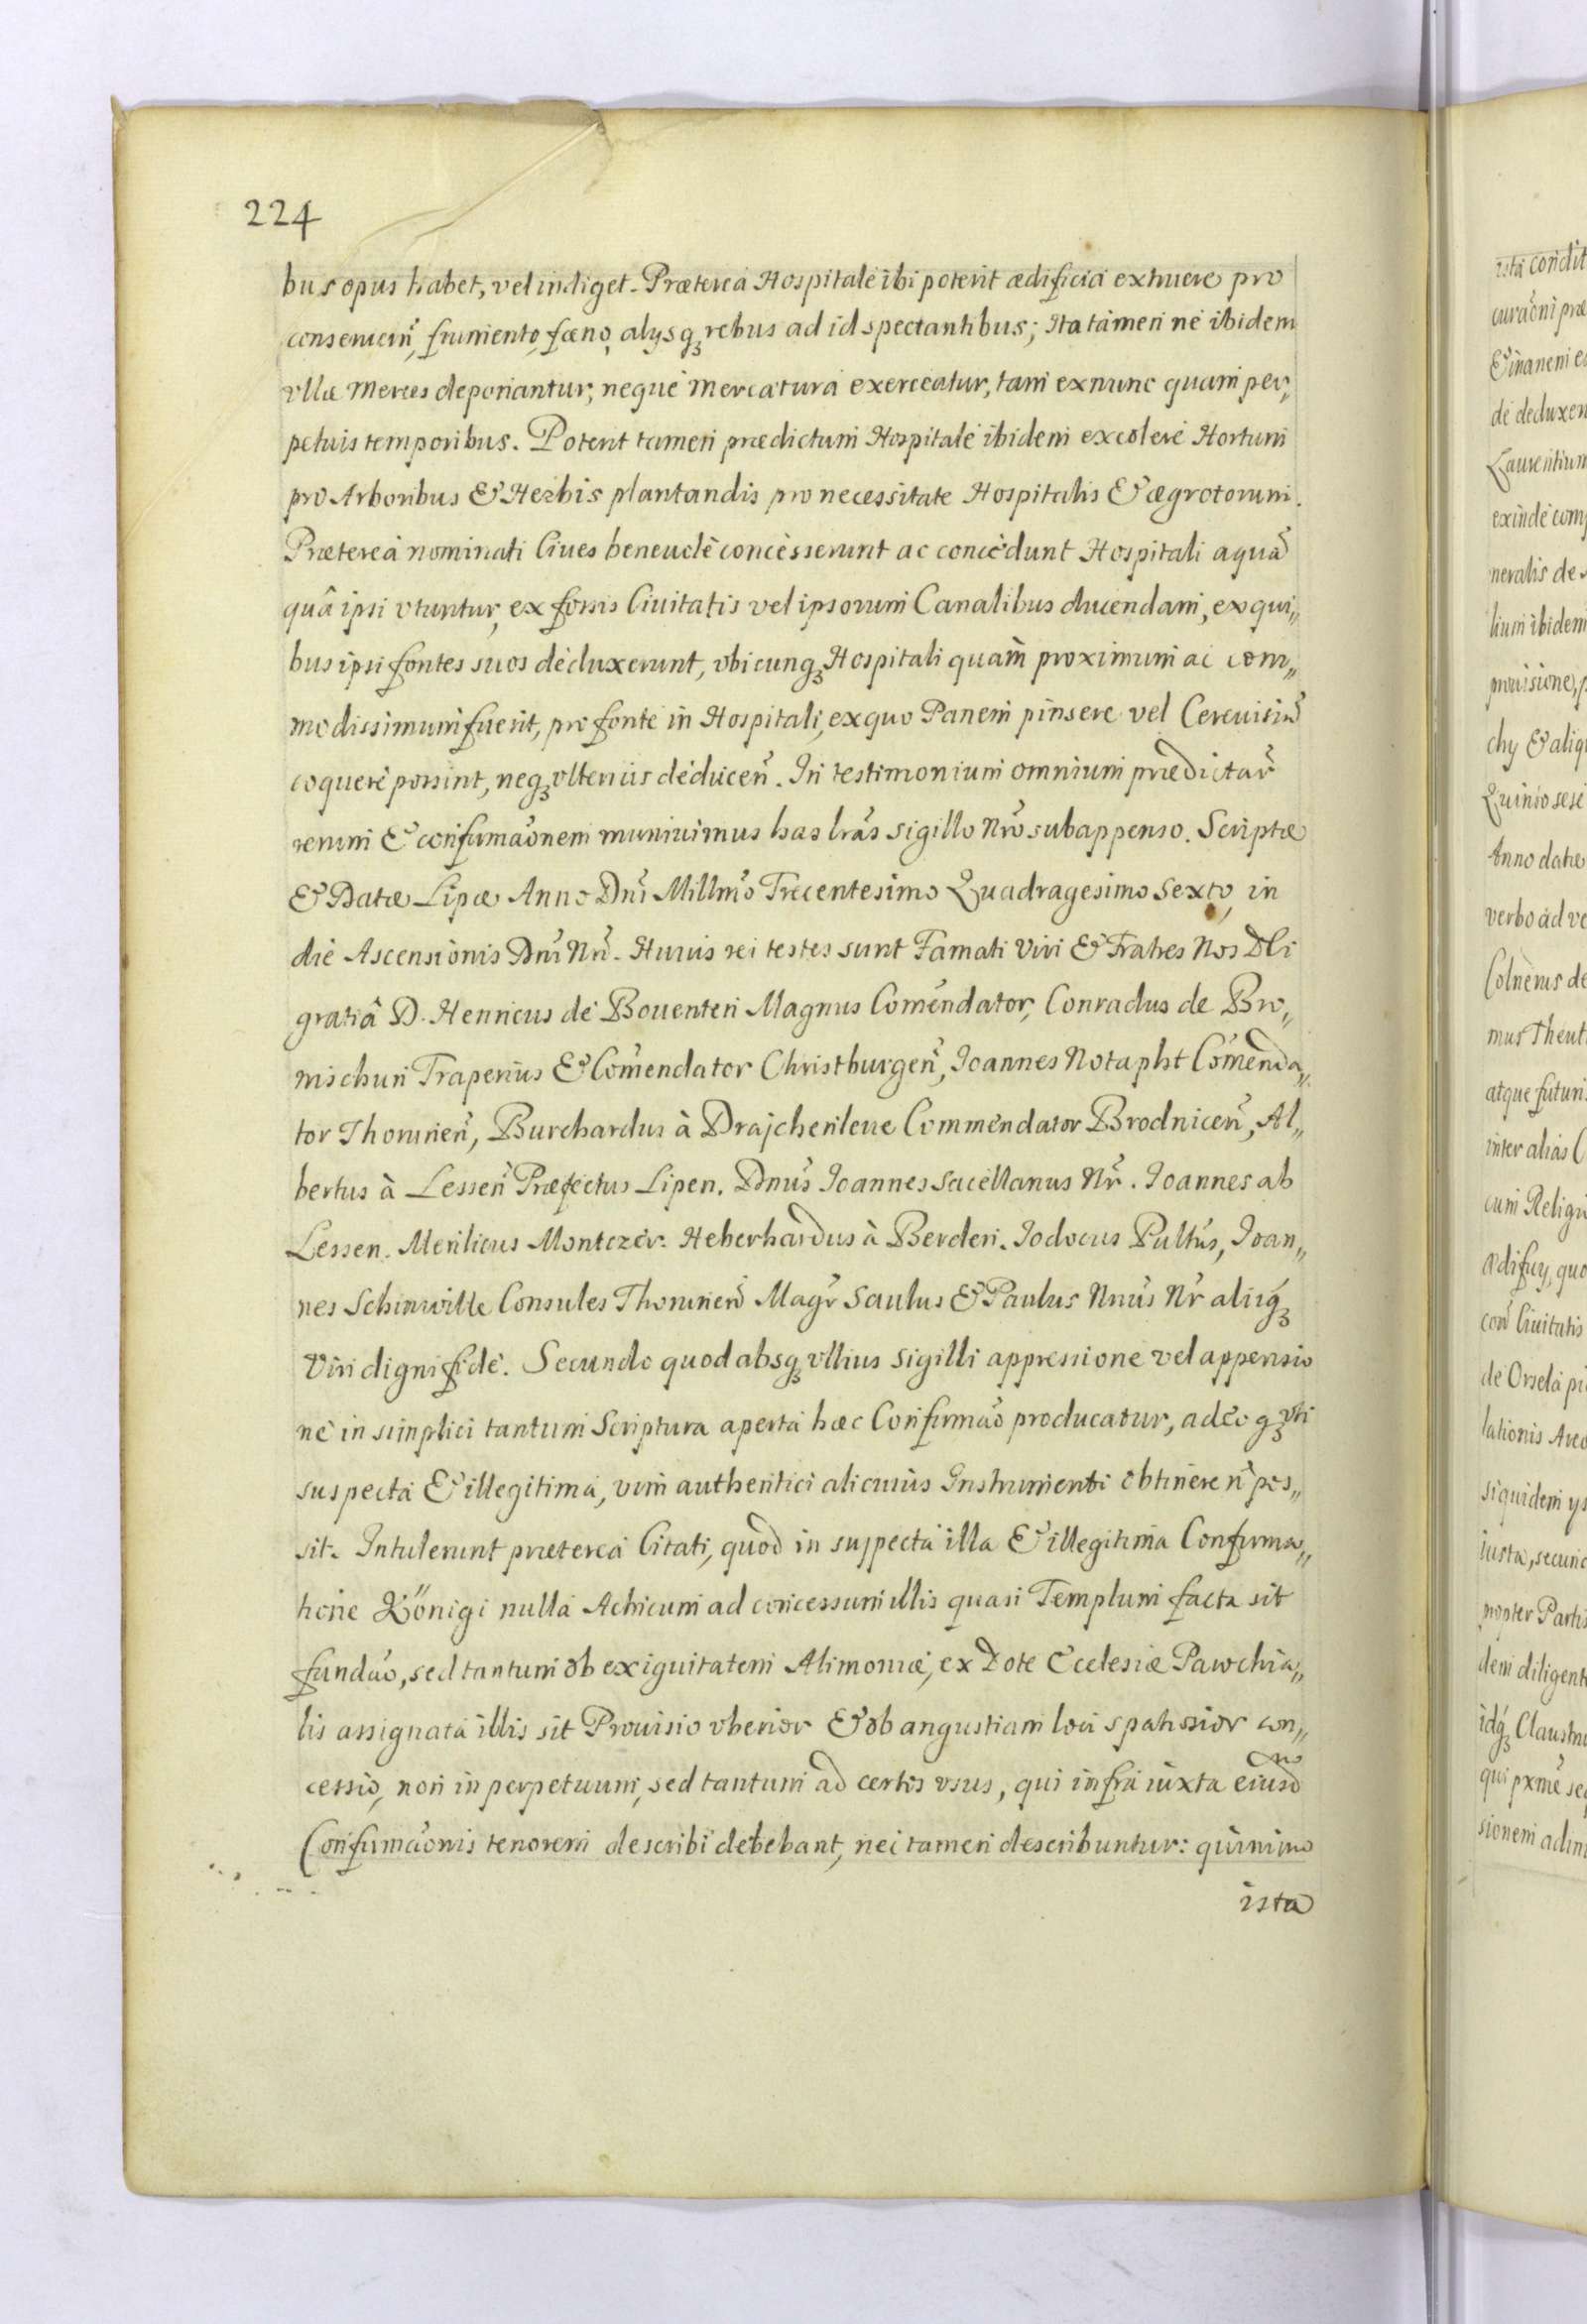 224
bus opus habet, vel indiget. Prætereà Hospitale ibi poterit ædificia extruere pro
conseruan̄, frumento, fæno, alysq₃ rebus ad id spectantibus; Ita tamen ne ibidem
vllæ merces deponantur, neque mercatura exerceatur, tam ex nunc quam per„
petuis temporibus. Poterit tamen prædictum Hospitale ibidem excolere Hortum
pro Arboribus & Herbis plantandis pro necessitate Hospitalis & ægrotorum.
Prætereà nominati Ciues beneuolè concesserunt ac concedunt Hospitali aquā
quâ ipsi vtuntur, ex fossis Ciuitatis vel ipsorum Canalibus ducendam, ex qui„
bus ipsi fontes suos deduxerunt, vbicunq₃ Hospitali quàm proximum ac com„
modissimum fuerit, pro fonte in Hospitali, ex quo Panem pinsere vel Cereuisiā
coquere possint, neq₃ vlterius deducen̄. In testimonium omnium prædictar̄
rerum & confirmaōnem muniuimus has lrās sigillo Nr̄o subappenso. Scriptæ
& Datæ Lipæ Anno Dn̄i Millmo̅ Trecentesimo Quadragesimo Sexto, in
die Ascensionis Dn̄i Nr̄i. Huius rei testes sunt Famati Viri & Fratres Nos Dei
gratiâ D. Henricus de Bouenteri Magnus Com̄endator, Conradus de Bro„
nischuri Traperius & Com̄endator Christburgen̄, Ioannes Notapht Com̄enda„
tor Thorunen̄, Burchardus à Drajchenleue Commendator Brodnicen̄, Al„
bertus à Lessen Præfectus Lipen. Dnūs Ioannes Sacellanus Nr̄. Ioannes ab
Lessen. Menlicus Montczer. Heberhardus à Berden. Iodocus Pultus, Ioan„
nes Schinwille Consules Thorunen̄ Magr̄ Saulus & Paulus Nnūs Nr̄ aliiq₃
Viri digni fide. Secundo quod absq₃ vllius Sigilli appressione vel appensio
ne in simplici tantum Scriptura aperta hæc Confirmaō producatur, adeoq₃ vti
suspecta & illegitima, vim authentici alicuius Instrumenti obtinere n̄ pos„
sit. Intulerunt prætereà Citati, quod in suspecta illa & illegitima Confirma„
tione Königi nulla Achicum ad concessum illis quasi Templum facta sit
fundaō, sed tantum ob exiguitatem Alimoniæ, ex Dote Ecclesiæ Parochia„
lis assignata illis sit Prouisio vberior & ob angustiam loci spatiosior con„
cessio, non in perpetuum, sed tantum ad certos vsus, qui infra iuxta eiusd
Confirmaōnis tenorem describi debebant, nec tamen describuntur: quinimo
ista